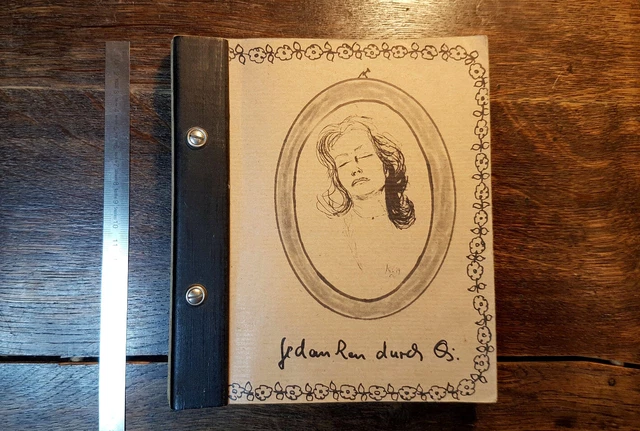 Gedanken durch